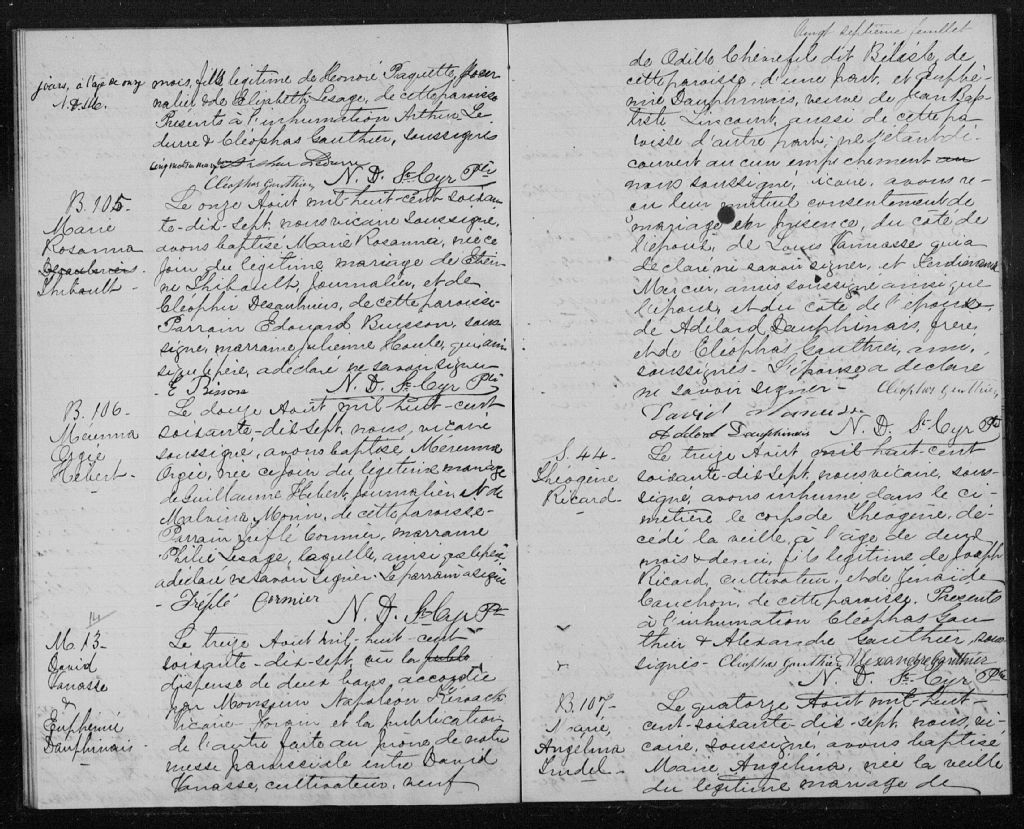 jours, à l'age de onze
N. D. StC.
mois, fille légitime de Honoré Paquette, Jour-
nalier & de Elizabeth Lesage, de cette paroisse
Présents à l'inhumation Arthur Le-
durre & Cléophas Gauthier, soussignés
Cléophas Gauthier N. D. St-Cyr Ptre
B. 105-
Marie
Rosanna
Desaulniers
Thibault-
Le onze Aout mil huit-cent soixan-
te-dix-sept nous vicaire soussigné,
avons baptisé Marie Rosanna, née ce
jour du légitime mariage de Etien-
ne Thibault, journalier, et de
Cléophir Desaulniers, de cette paroisse-
Parrain Edouard Buisson, sous-
signé, marraine Julienne Houle, qui ain-
si que le père, a déclaré ne savoir signer
- E Bisson N. D. St-Cyr Ptre
B. 106-
Mérinna
Orgée
Hébert-
Le douze Aout mil huit-cent
soixante-dix-sept, nous, vicaire
soussigné, avons baptisé, Mérinna
Orgée, née ce jour du légitime mariage
de Guillaume Hebert, journalier, & de
Malvina Morin, de cette paroisse-
Parrain Treflé Cormier, marraine
Philie Lesage, laquelle, ainsi que le père,
a déclaré ne savoir signer. Le parrain a signé
- Tréflé Cormier
N. D. St-Cyr Ptre
M. 13-
David
Vanasse
&
Euphémie
Dauphinais-
Le treize Aout mil-huit-cent
soixante-dix-sept, vu la publo
dispense de deux bans, accordée
par Monsieur Napoléon Kéroack
Vicaire-Forain et la publication
de l'autre faite au prône de notre
messe paroissiale entre David
Vanasse, cultivateur, veuf
Vingt septième feuillet
de Odille Chênefil dit Bélisle, de
cette paroisse, d'une part, et Euphé-
mie Dauphinais, veuve de Jean Bap-
tiste Lincourt, aussi de cette pa-
roisse d'autre part; ne s'étant dé-
couvert aucun empêchement au
nous soussigné, vicaire, avons re-
çu leur mutuel consentement de
mariage en présence, du côté de
l'époux, de Louis Vanasse qui a
déclaré ne savoir signer, et Ferdinand
Mercier, amis soussigné ainsi que
l'époux, et du côté de l'épouse
de Adélard Dauphinais, frère,
et de Cléophas Gauthier, ami,
soussignés- L'épouse a déclaré
ne savoir signer- Cléophas Gauthier
David Vanasse
Adélard Dauphinais N. D. St-Cyr Ptre
S. 44-
Théogène
Ricard-
Le treize Aout mil huit-cent
soixante-dix-sept, nous vicaire, sous-
signé, avons inhumé dans le ci-
metière le corps de Théogène, dé-
cédé la veille, à l'age de deux
mois & demi, fils légitime de Joseph
Ricard, cultivateur, et de Zénaïde
Cauchon, de cette paroisse. Présents
à l'inhumation Cléophas Gau-
thier & Alexandre Gauthier, sous-
signés- Cléophas Gauthier Alexandre Gauthier
N. D. St-Cyr Ptre
B. 107-
Marie
Angélina
Trudel-
Le quatorze Aout mil huit-
cent-soixante-dix-sept, nous, vi-
caire, soussigné, avons baptisé
Marie Angélina, née la veille
du légitime mariage de